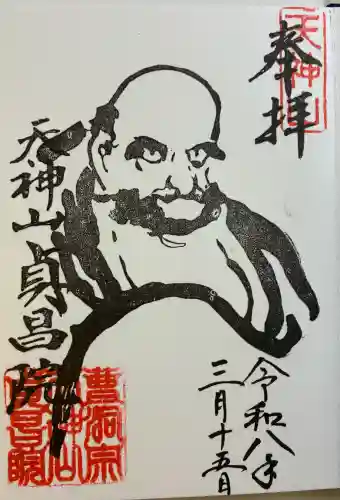 奉拝
天神山
天神山貞昌院
令和八年
三月十五日
曹洞宗
天神山
貞昌院